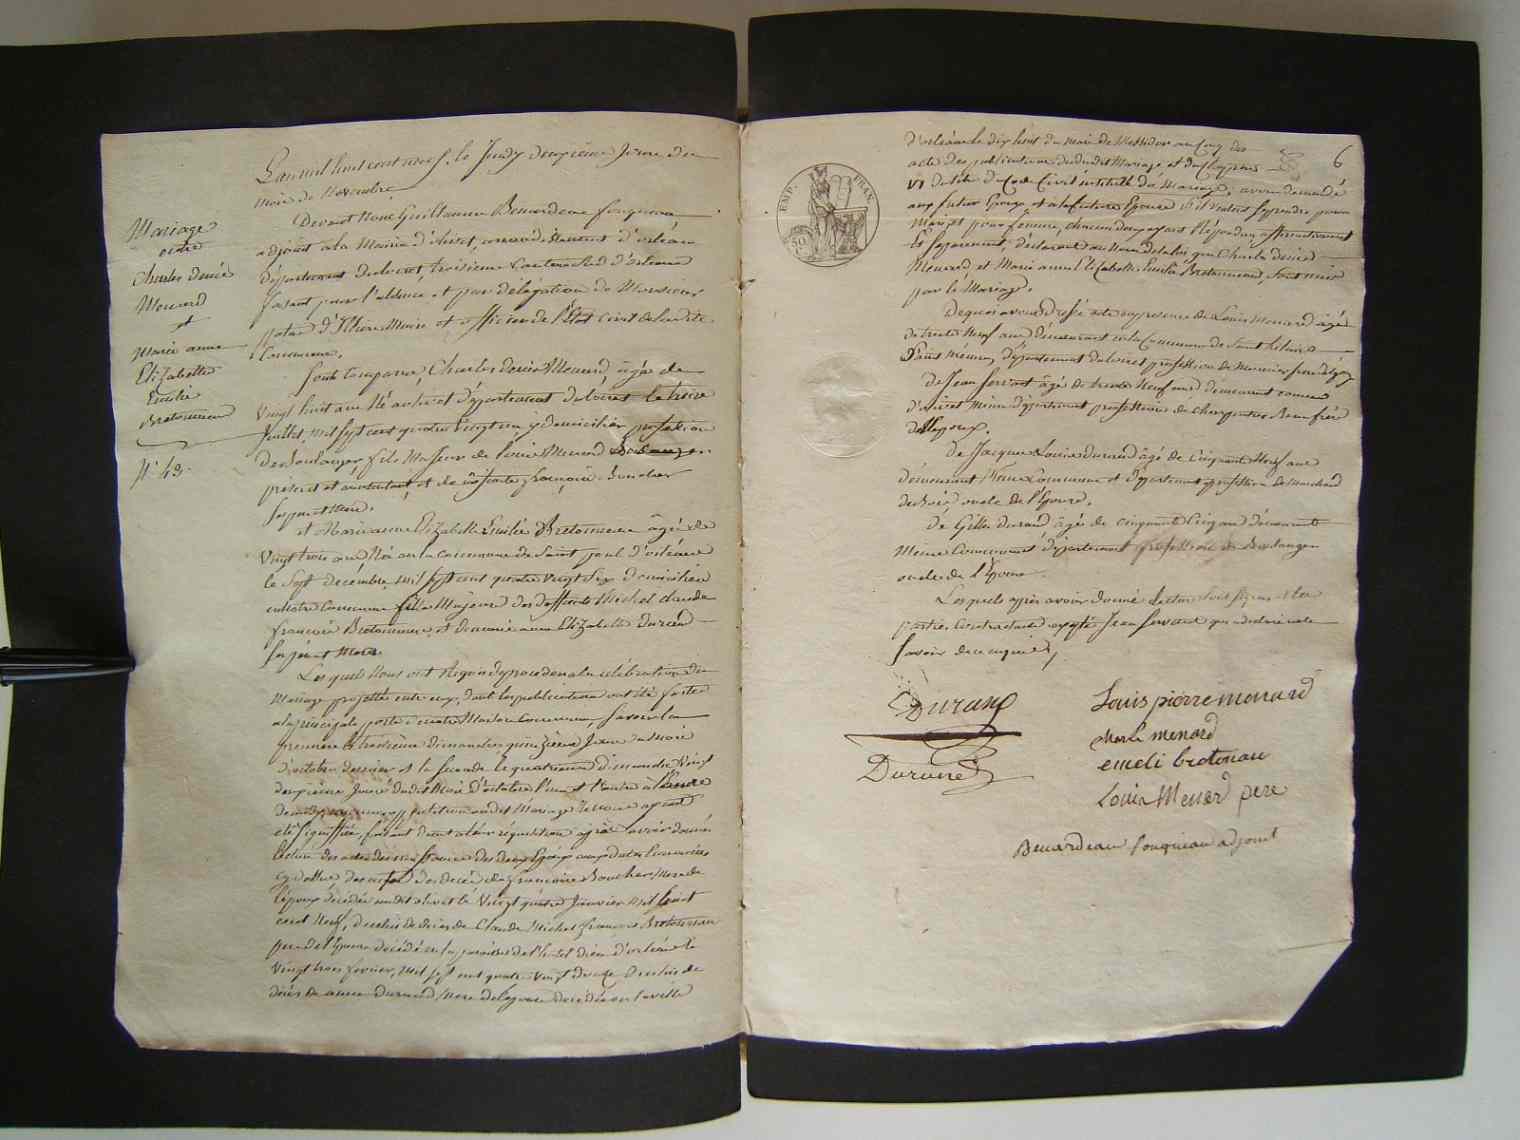 L'an mil huit cent neuf, le Jeudy deuxième Jour du
mois de Novembre
Devant Nous Guillaume Benardeau fouqueau,
adjoint a la Mairie d'olivet, arrondissement d'orleans
Département du loiret, troisieme Canton Sud d'orleans
faisant pour l'absence et par délégation de Monsieur
Maire et officier de l'État civil de la dite
Commune.
Mariage
entre
Charles denis
Menard
et
Marie anne
Elizabethe
Emélie
Bretonneau
N° 49.
Sont Comparus, Charles denis Menard, âgé de
Vingt huit ans Né au d'olivet département du loiret le treize
Juillet, mil sept cent quatre vingt un y domicilié profession
de Boulanger, fils Majeur de Louis Menard
présent et consentant, et de françoise Boucher
ses père et mère.
et Marie anne Elizabethe Emélie Bretonneau âgée de
Vingt trois ans, Née en la commune de Saint paul d'orléans
le Sept décembre mil sept cent quatre vingt Six domiciliée
en notre Commune fille Majeure des deffunts Michel claude
françois Bretonneau, et de marie anne Elizabethe Durand
ses père et Mère.
Les quels Nous ont Requis de proceder a la celebration du
Mariage projetté entre eux, dont les publications ont été faites
a la principale porte de notre Maison Commune, savoir la
premiere le dimanche quinzieme Jour du Mois
d'octobre dernier et la seconde le dimanche Vingt
deuxieme Jour dudit Mois d'octobre l'un et l'autre à l'heure
de midy, aucune opposition audit Mariage Ne nous ayant
été signifiée, faisant droit a leur réquisition après avoir donné
lecture des actes de naissance des deux Epoux
de l'acte de décès de françoise Boucher Mere de
l'époux décédée audit olivet le Vingt quatre Janvier mil huit
cent Neuf, de celui de décès de Claude Michel françois Bretonneau
pere de l'Epouse décédé en la paroisse de l'hotel dieu d'orléans le
Vingt trois fevrier, mil sept cent quatre vingt de celui de
décès de anne Durand Mere de l'epouse décédée en la ville
6
EMP. FRAN.
50
d'orléans le dix huit du mois de Messidor an Cinq des
actes des publications dudit Mariage, et du Chapitre
VI du titre du Code Civil intitulé du Mariage, avons demandé
aux futur Epoux et a la future Epouse s'ils veulent se prendre pour
Mari et pour femme, chacun d'eux ayant répondu affirmativement
et séparement, déclarons au Nom de la loi que Charles denis
Menard, et Marie anne Elizabethe Emélie Bretonneau, sont unis
par le Mariage.
De quoi avons dressé acte en presence de Louis Menard âgé
de trente Neuf ans demeurant en la Commune de Saint hilaire
Saint Mesmin, Département du loiret profession de Meunier frere de l'époux
de Jean servant âgé de trente Neuf ans, demeurant commune
d'olivet même département profession de charpentier Beau frère
de l'époux.
De Jacques Louis durand âgé de Cinquante Neuf ans
demeurant même Commune et département profession de Marchand
de Bois, oncle de l'Epouse.
De Gilles Durand âgé de cinquante Cinq ans demeurant
même Commune et département profession de Boulanger
oncle de l'Epouse.
Lesquels après avoir donné lecture ont signé et les
parties contractantes excepté Jean Servant qui a declaré ne le
savoir de ce enquis,
Durand
Durand
Louis pierre menard
Charle menard
emeli bretonau
Louis Menard pere
Benardeau fouqueau adjoint